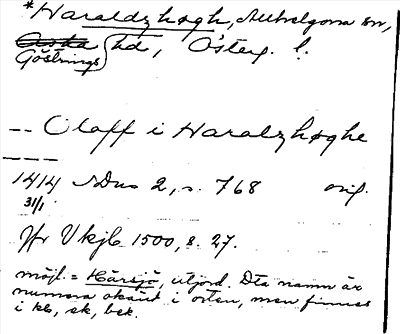 *Haraldzhøgh, Allhelgona sn,
Aska
Göstrings hd, Österg. l.
-- Olaff i Haralzhøghe
----
1414 SDns 2, s. 768 orig.
31/1
Jfr Vkjb 1500, s. 27.
möjl. = Härsjö, utjord. Dta namn är
numera okänt i orten, men finnes
i kb, sk, bek.